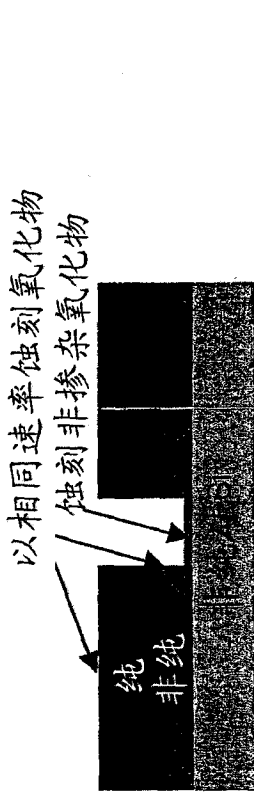 以相同速率蚀刻氧化物
蚀刻非掺杂氧化物
纯
非纯